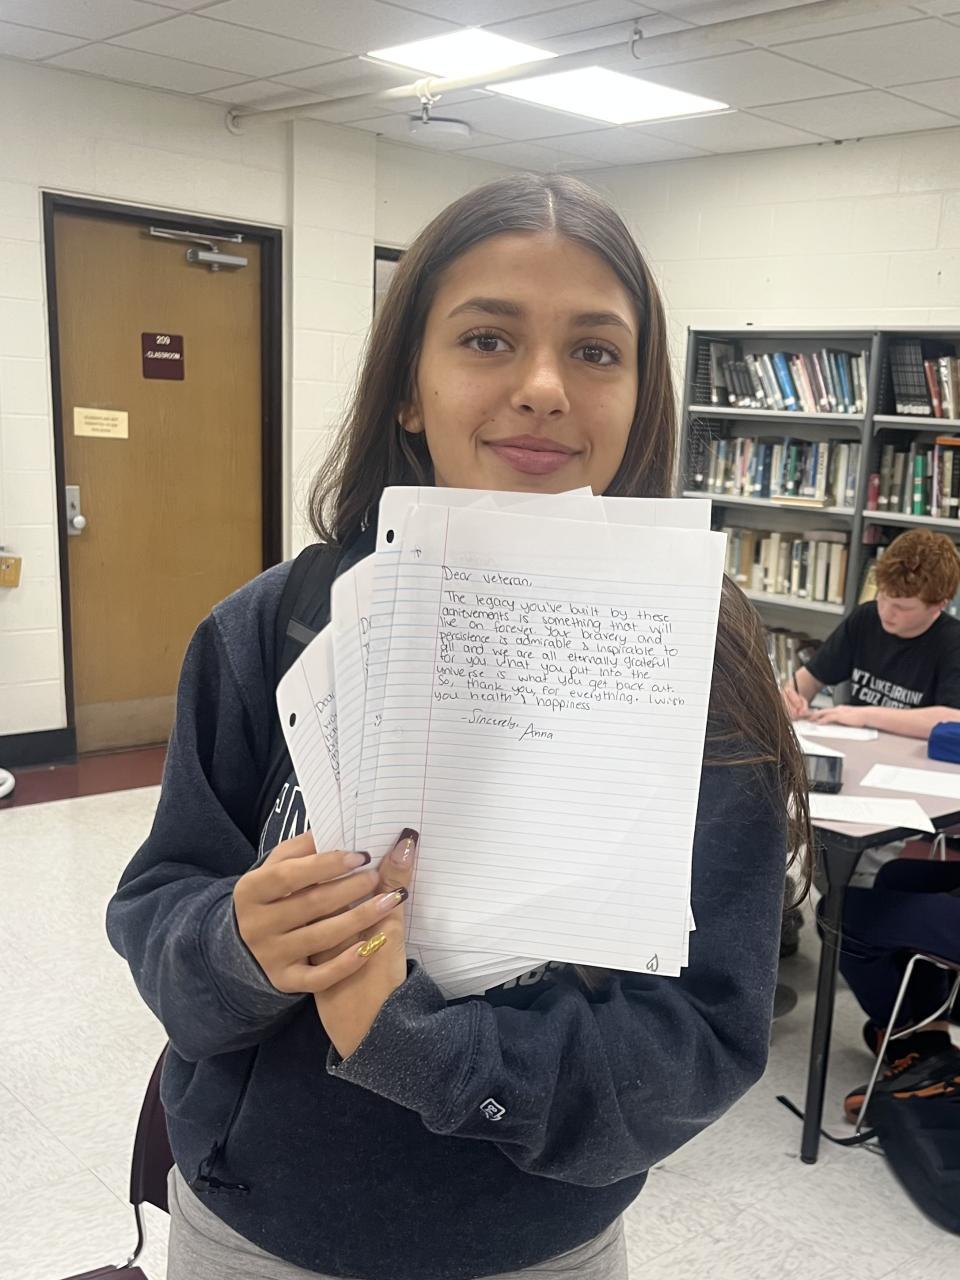 209
CLASSROOM
Dear Veteran,
The legacy you've built by these
achievements is something that will
live on forever. Your bravery and
persistence is admirable & inspirable to
all and we are all eternally grateful
for you. What you put into the
universe is what you get back out.
So, thank you, for everything. I wish
you health & happiness
-Sincerely,
Anna